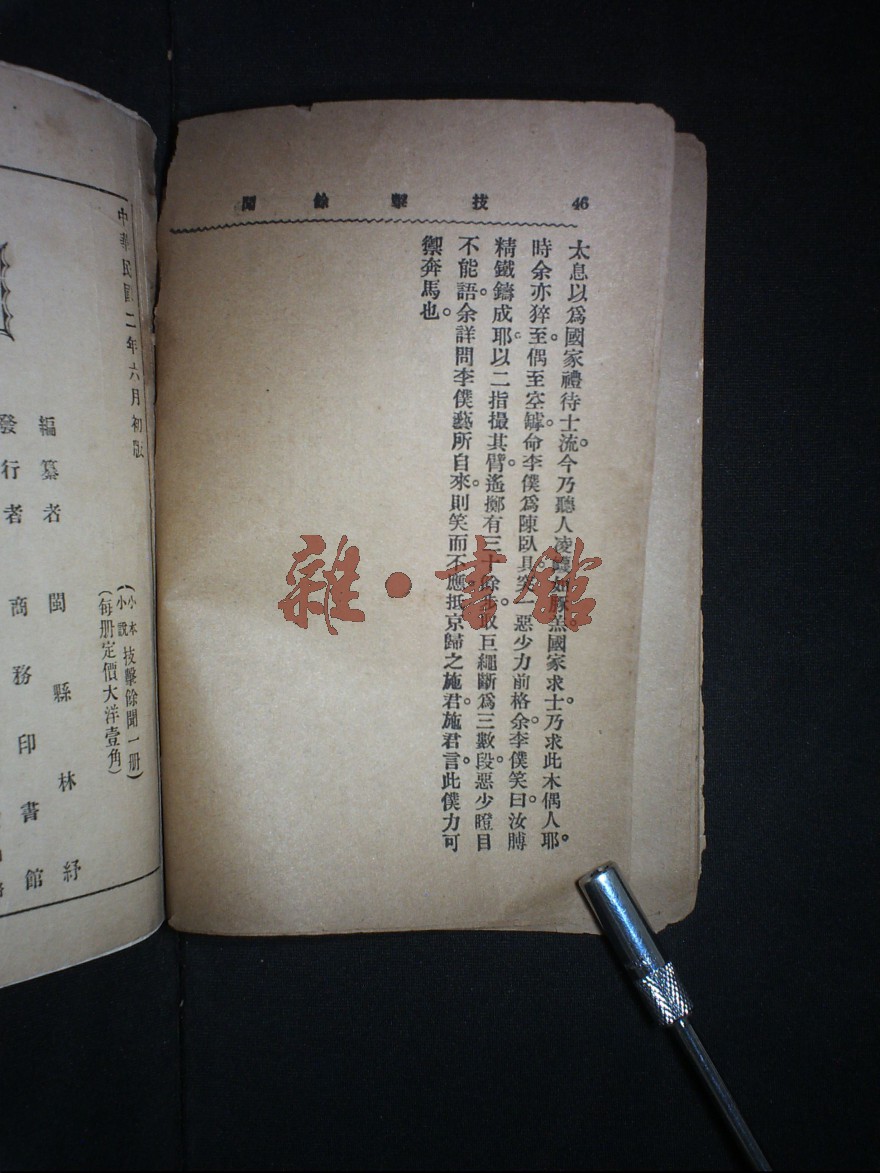 46
技擊餘聞
太息以爲國家禮待士流。今乃聽人凌如豚羔。國家求士乃求此木偶人耶。
時余亦猝至。偶至空罅。命李僕爲陳臥具。突一惡少力前格余。李僕笑曰。汝膊
精鐵鑄成耶。以二指撮其臂。遙擲有三十餘步。取巨繩斷爲三數段。惡少瞪目
不能語。余詳問李僕藝所自來。則笑而不應。抵京歸之施君。施君言此僕力可
禦奔馬也。
中華民國二年六月初版
(小本小說技擊餘聞一册)
(每册定價大洋壹角)
編纂者 閩縣林紓
發行者 商務印書館
雜·書館